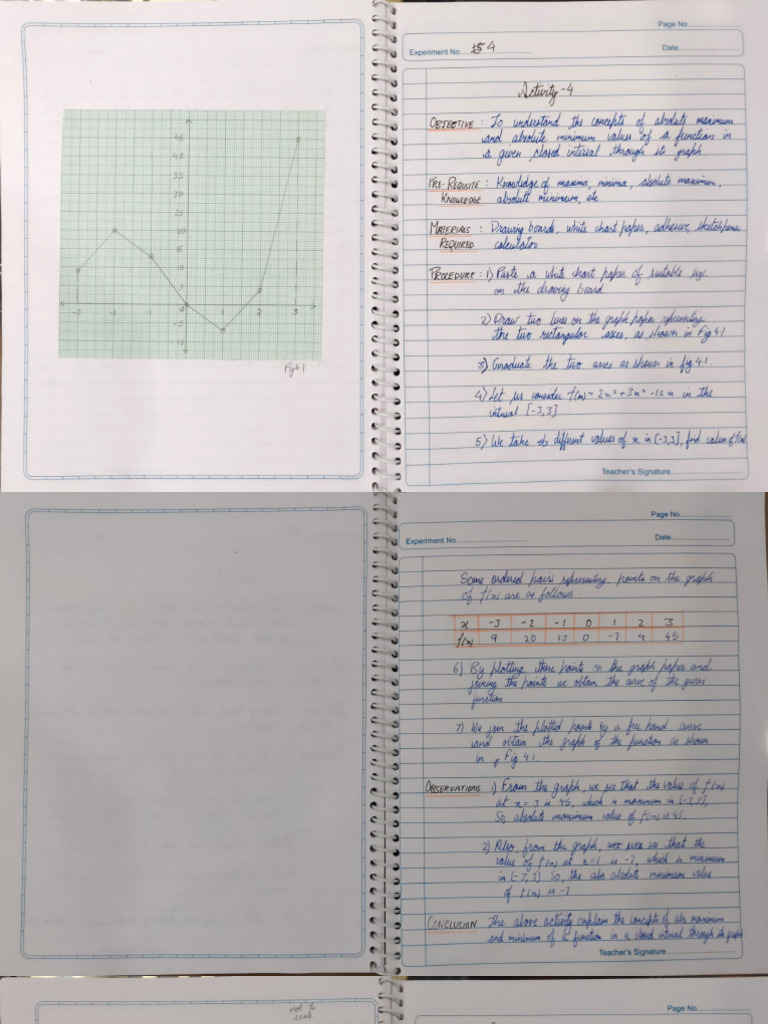 45
40
35
30
25
20
15
10
5
-3 -2 -1 0 1 2 3
-5
Fig 4.1
Page No.
Experiment No. 4
Date
Activity-4
OBJECTIVE : To understand the concepts of absolute maximum
and absolute minimum values of a function in
a given closed interval through its graph
PRE-REQUISITE : Knowledge of maxima, minima, absolute maximum,
KNOWLEDGE absolute minimum, etc
MATERIALS : Drawing boards, white chart paper, adhesive, sketchpens,
REQUIRED calculator
PROCEDURE : 1) Paste a white chart paper of suitable size
on the drawing board
2) Draw two lines on the graph paper representing
the two rectangular axes, as shown in Fig 4.1
3) Graduate the two axes as shown in fig 4.1.
4) Let us consider f(x) = 2x³ + 3x² - 12x in the
interval [-3,3]
5) We take different values of x in [-3,3], find values of f(x)
Teacher's Signature
Page No.
Experiment No.
Date
Some ordered pairs representing points on the graph
of f(x) are as follows.
x -3 -2 -1 0 1 2 3
f(x) 9 20 13 0 -7 4 45
6) By plotting these points on the graph paper and
joining the points we obtain the curve of the given
function
7) We join the plotted points by a free hand curve
and obtain the graph of the function as shown
in Fig 4.1.
OBSERVATIONS 1) From the graph, we see that the value of f(x)
at x = 3 is 45, which is maximum in [-3,3],
So, absolute maximum value of f(x) is 45.
2) Also, from the graph, we see that the
value of f(x) at x=1 is -7, which is minimum
in [-3,3] So, the absolute minimum value
of f(x) is -7
CONCLUSION The above activity explain the concepts of abs maximum
and minimum of a function in a closed interval through its graph.
Teacher's Signature
not to
scale
Page No.